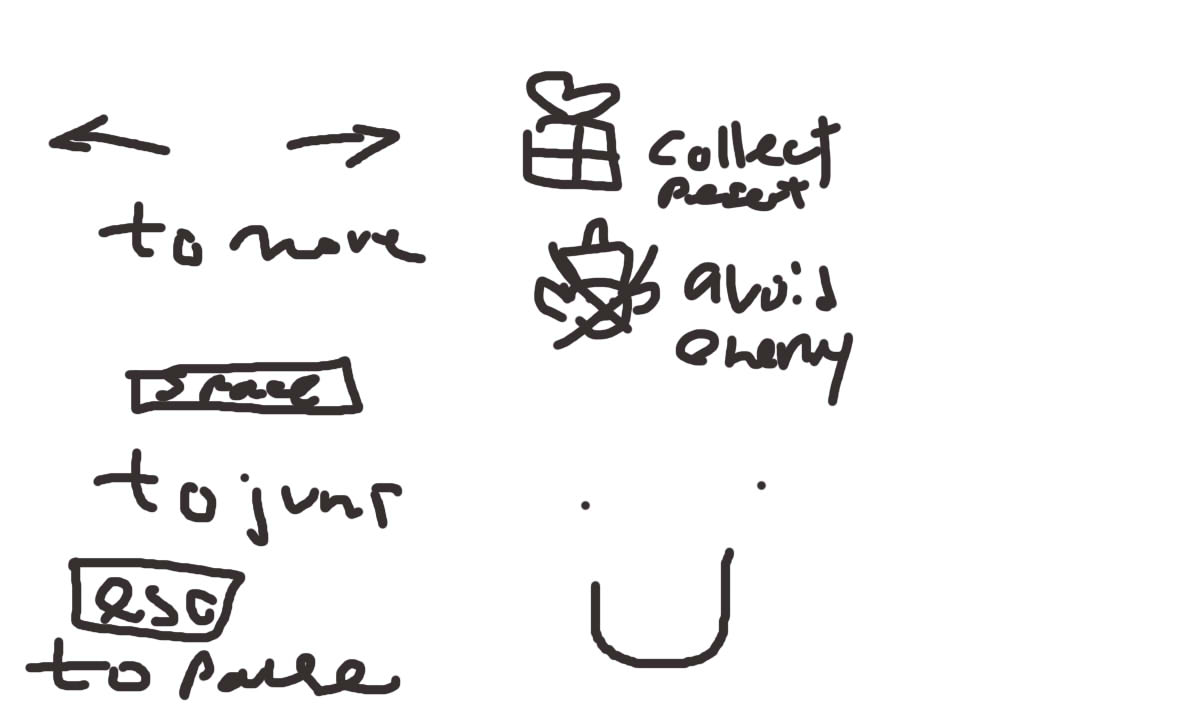 to move
space
to jump
esc
to pause
collect
present
avoid
enemy